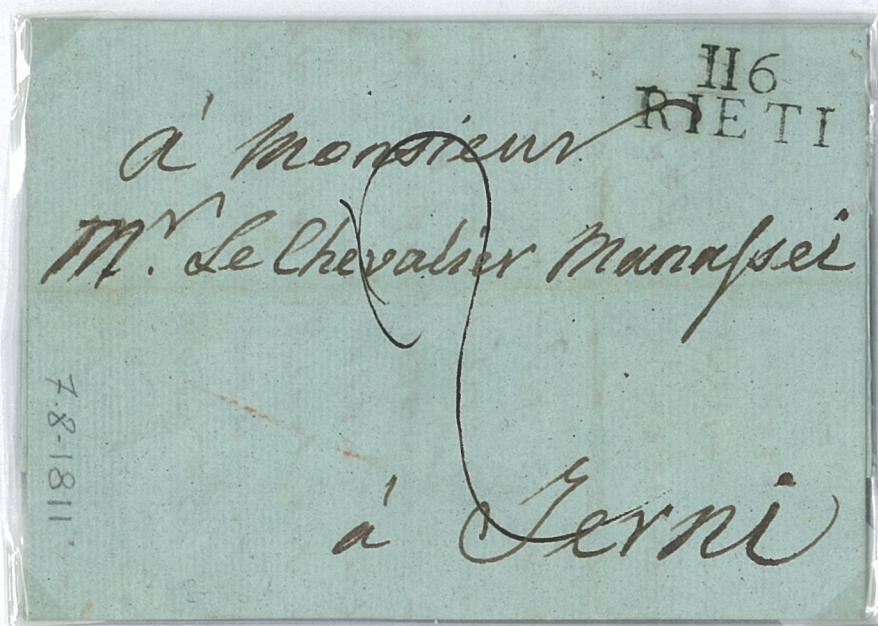 116
RIETI
à Monsieur
Mr. Le Chevalier Manaſsei
à Terni
7-8-1811